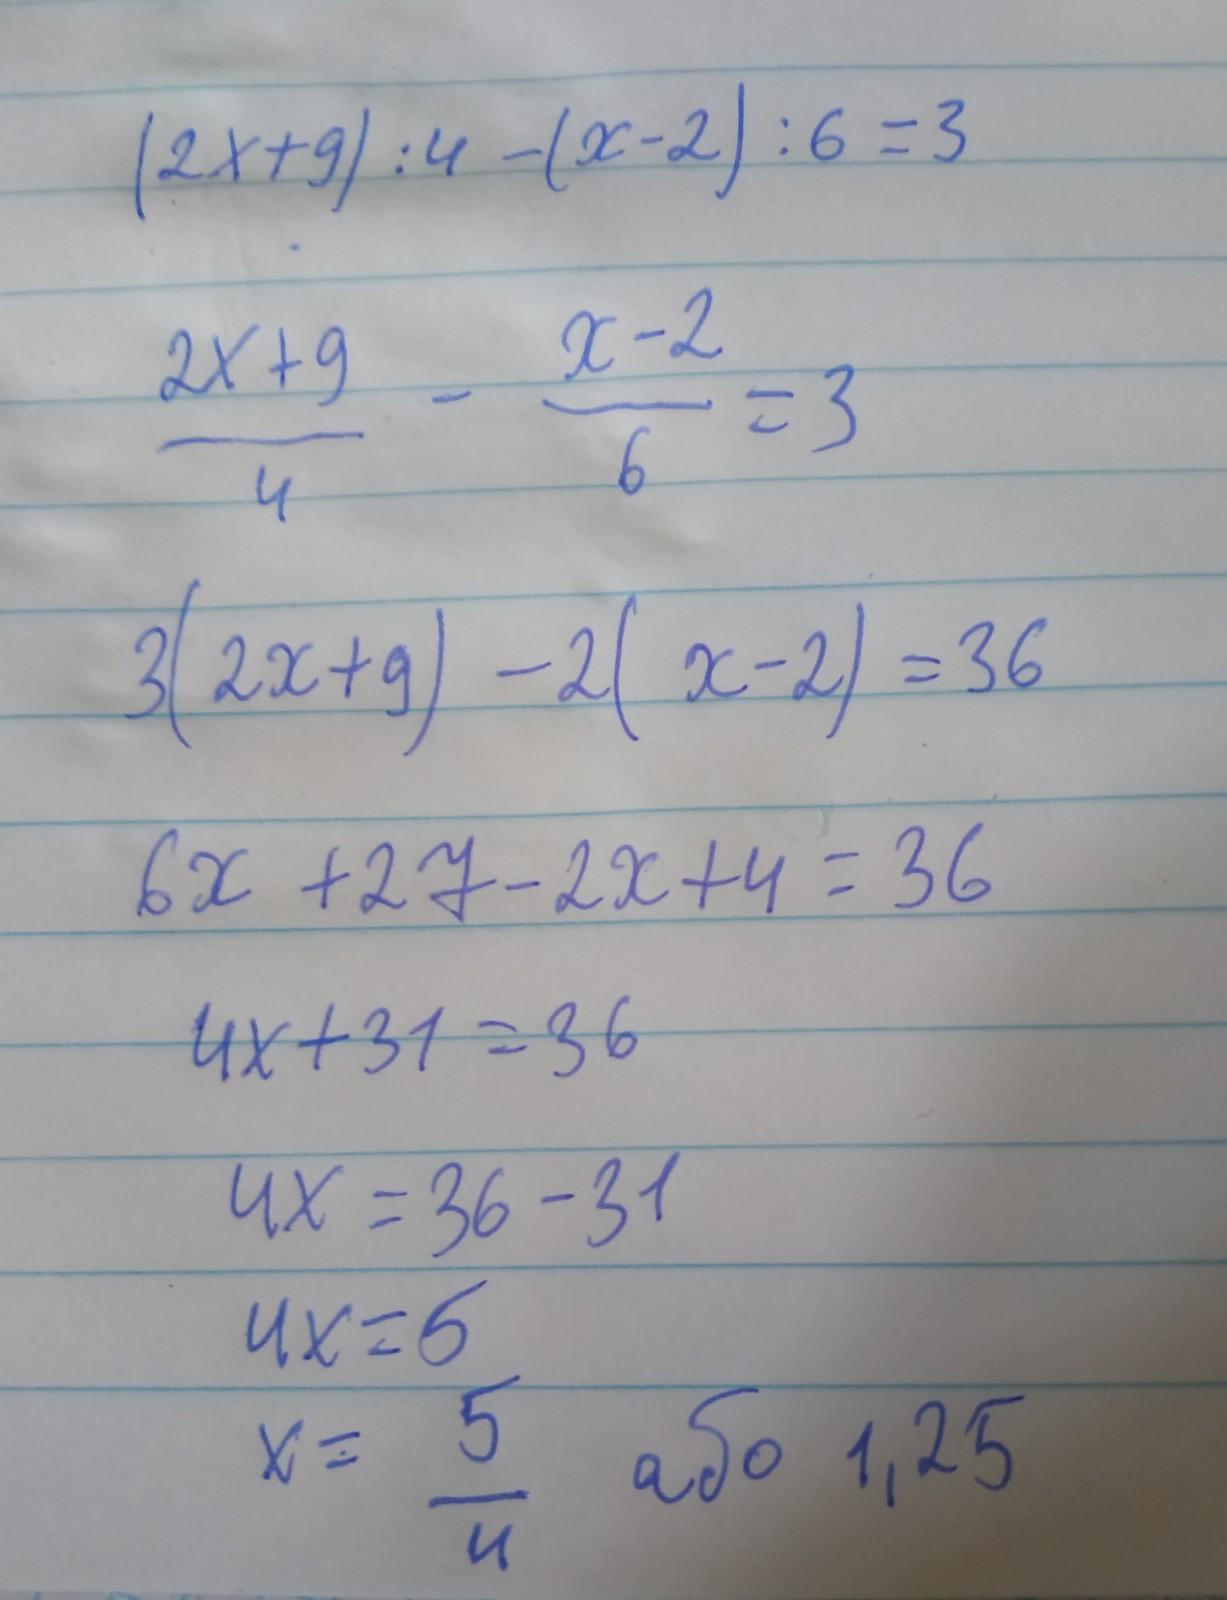 (2x+9) :4 -(x-2) :6 =3
2x+9 / 4 - x-2 / 6 =3
3(2x+9) -2( x-2) =36
6x +27-2x+4=36
4x+31=36
4x =36-31
4x=5
x= 5/4 або 1,25